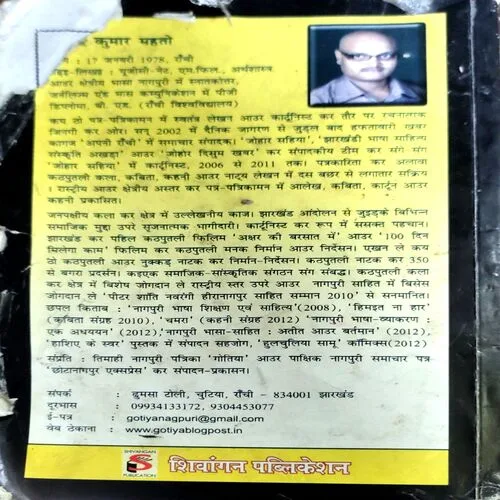 कुमार महतो
: 17 जनवरी 1978, राँची
लिखइ : यूजीसी-नेट, एम.फिल., अर्थशास्त्र
आउर क्षेत्रीय भासा नागपुरी में स्नातकोत्तर,
जर्नलिज्म एंड मास कम्युनिकेशन में पीजी
डिप्लोमा, बी. एड. (राँची विश्वविद्यालय)
कए ठो पत्र-पत्रिकामन में स्वतंत्र लेखन आउर कार्टूनिस्ट कर तौर पर रचनात्मक
जिनगी कर ओर। सन् 2002 में दैनिक जागरण से जुड़ल बाद हफतावारी खबर
कागज 'अपनी राँची' में समाचार संपादक, 'जोहार सहिया', 'झारखंडी भाषा साहित्य
संस्कृति अखड़ा' आउर 'जोहार दिसुम खबर' कर संपादकीय टीम कर संग संग
'जोहार सहिया' कर कार्टूनिस्ट, 2006 से 2011 तक। पत्रकारिता कर अलावा
कठपुतली कला, कविता, कहनी आउर नाट्य लेखन में दस बछर से लगातार सक्रिय
। राष्ट्रीय आउर क्षेत्रीय अस्तर कर पत्र-पत्रिकामन में आलेख, कविता, कार्टून आउर
कहनी प्रकासित।
जनपक्षीय कला कर क्षेत्र में उल्लेखनीय काज। झारखंड आंदोलन से जुइड़के बिभिन्न
समाजिक मुद्दा उपरे सृजनात्मक भागीदारी। कार्टूनिस्ट कर रूप में ससक्त पहचान।
झारखंड कर पहिल कठपुतली फिलिम 'अक्षर की बरसात में' आउर '100 दिन
मिलेगा काम' फिलिम कर कठपुतली मनक निर्मान आउर निर्देसन। एखन ले कय
ठो कठपुतली आउर नुक्कड़ नाटक कर निर्मान-निर्देसन। कठपुतली नाटक कर 350
से बगरा प्रदर्सन। कइएक समाजिक-सांस्कृतिक संगठन संग संबद्ध। कठपुतली कला
कर क्षेत्र में बिशेष जोगदान ले रास्ट्रीय स्तर उपरे आउर नागपुरी साहित में बिसेस
जोगदान ले 'पीटर शांति नवरंगी हीरानागपुर साहित सम्मान 2010' से सनमानित।
छपल किताब : 'नागपुरी भाषा शिक्षण एवं साहित्य'(2008), 'हिमइत ना हार'
(कविता संग्रह 2010), 'धमरा' (कहनी संग्रह 2012) 'नागपुरी भाषा-व्याकरण :
एक अध्ययन' (2012),'नागपुरी भासा-साहित : अतीत आउर बर्तमान' (2012),
'हाशिए के स्वर' पुस्तक में संपादन सहजोग, 'हुलचुलिया सामू' कॉमिक्स(2012)
संप्रति : तिमाही नागपुरी पत्रिका 'गोतिया' आउर पाक्षिक नागपुरी समाचार पत्र-
'छोटानागपुर एक्सप्रेस' कर संपादन-प्रकासन।
संपर्क : डुमसा टोली, चुटिया, राँची - 834001 झारखंड
दूरभास : 09934133172, 9304453077
ई-पत्र : gotiyanagpuri@gmail.com
वेब ठेकाना : www.gotiyablogpost.in
SHIVANGAN
PUBLICATION
शिवांगन पब्लिकेशन